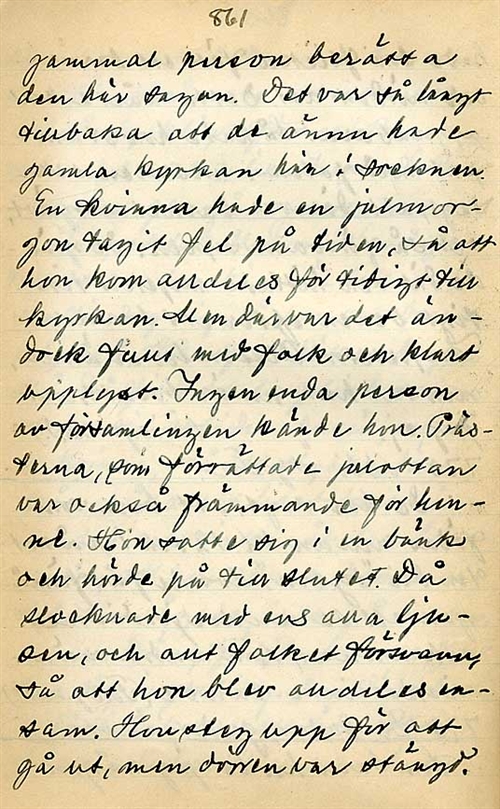 861
gammal person berätta
den här sagan. Det var så långt
tillbaka att de ännu hade
gamla kyrkan här i socknen.
En kvinna hade en julmor-
gon tagit fel på tiden, så att
hon kom alldeles för tidigt till
kyrkan. Men där var det än-
dock fullt med folk och klart
upplyst. Ingen enda person
av församlingen kände hon. Präs-
terna, som förrättade julottan
var också främmande för hen-
ne. Hon satte sig i en bänk
och hörde på till slutet. Då
slocknade med ens alla lju-
sen, och allt folket försvann,
så att hon blev alldeles en-
sam. Hon steg upp för att
gå ut, men dörren var stängd.